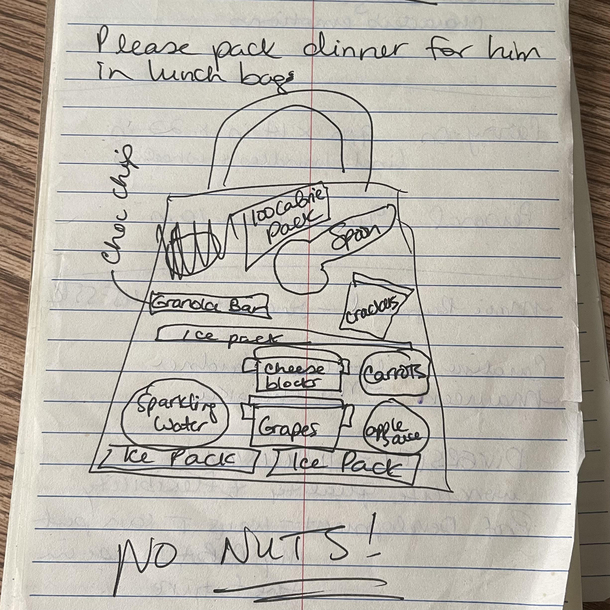 Please pack dinner for him
in lunch bags
100 Calorie
Pack
Spoon
Choc chip
Granola Bar
Crackers
Ice pack
Cheese
blocks
Carrots
Sparkling
Water
Grapes
apple
sauce
Ice Pack
Ice Pack
NO NUTS!